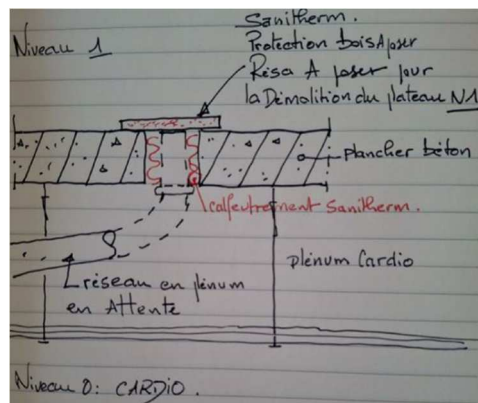 Sanitherm.
Niveau 1
Protection bois A poser
Résa A poser pour
la Démolition du plateau N1
plancher béton
calfeutrement sanitherm.
plénum Cardio
réseau en plénum
en Attente
Niveau 0: CARDIO.